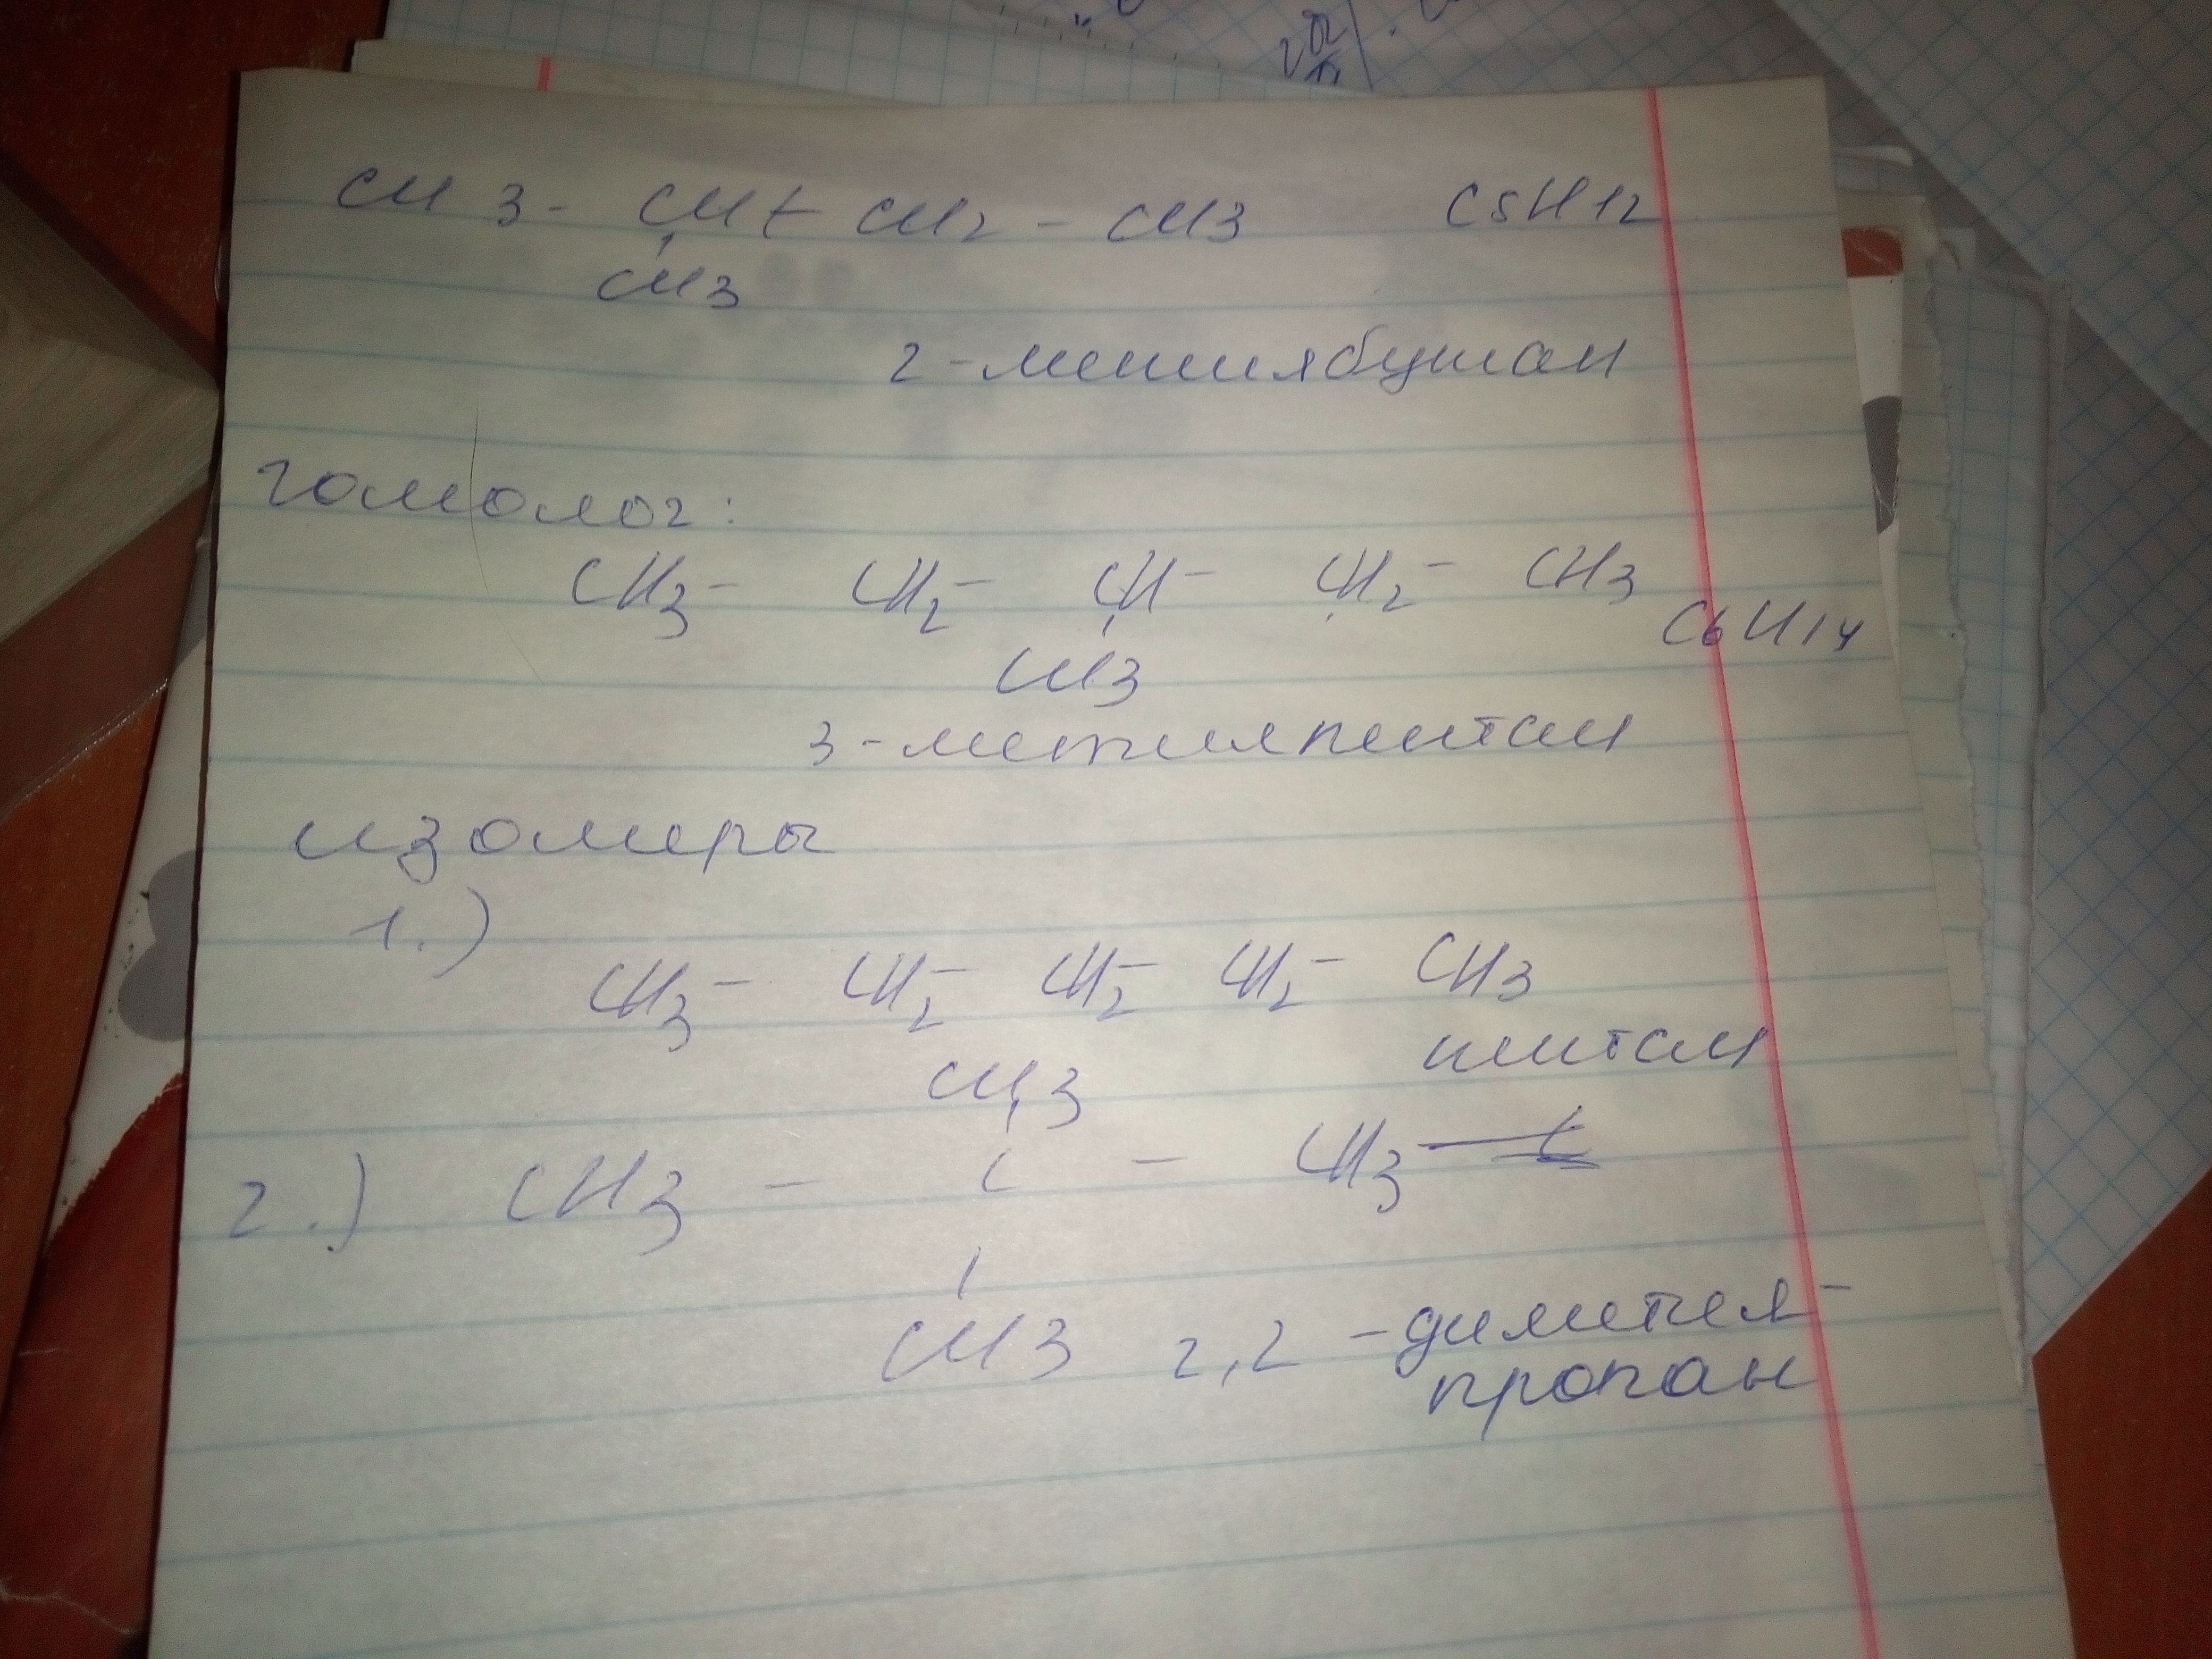 CH3 - CH - CH2 - CH3 C5H12
CH3
2-метилбутан
гомолог:
CH3 - CH2 - CH - CH2 - CH3
C6H14
CH3
3-метилпентан
изомеры
1.)
CH3 - CH2 - CH2 - CH2 - CH3
пентан
CH3
2.) CH3 - C - CH3
CH3 2,2 - диметил-
пропан